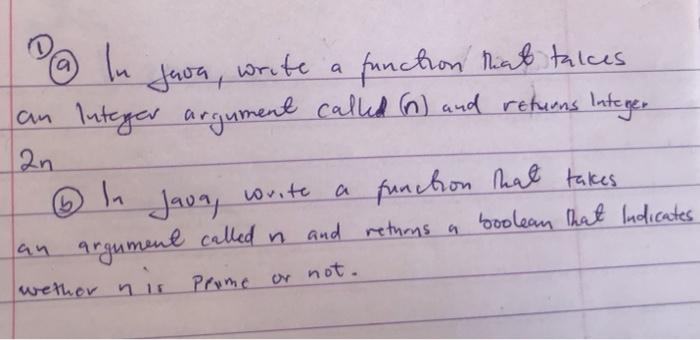 ① ⓐ In Java, write a function that takes
an Integer argument called (n) and returns Integer
2n
ⓑ In Java, write a function that takes
an argument called n and returns a boolean that Indicates
wether n is Prime or not.